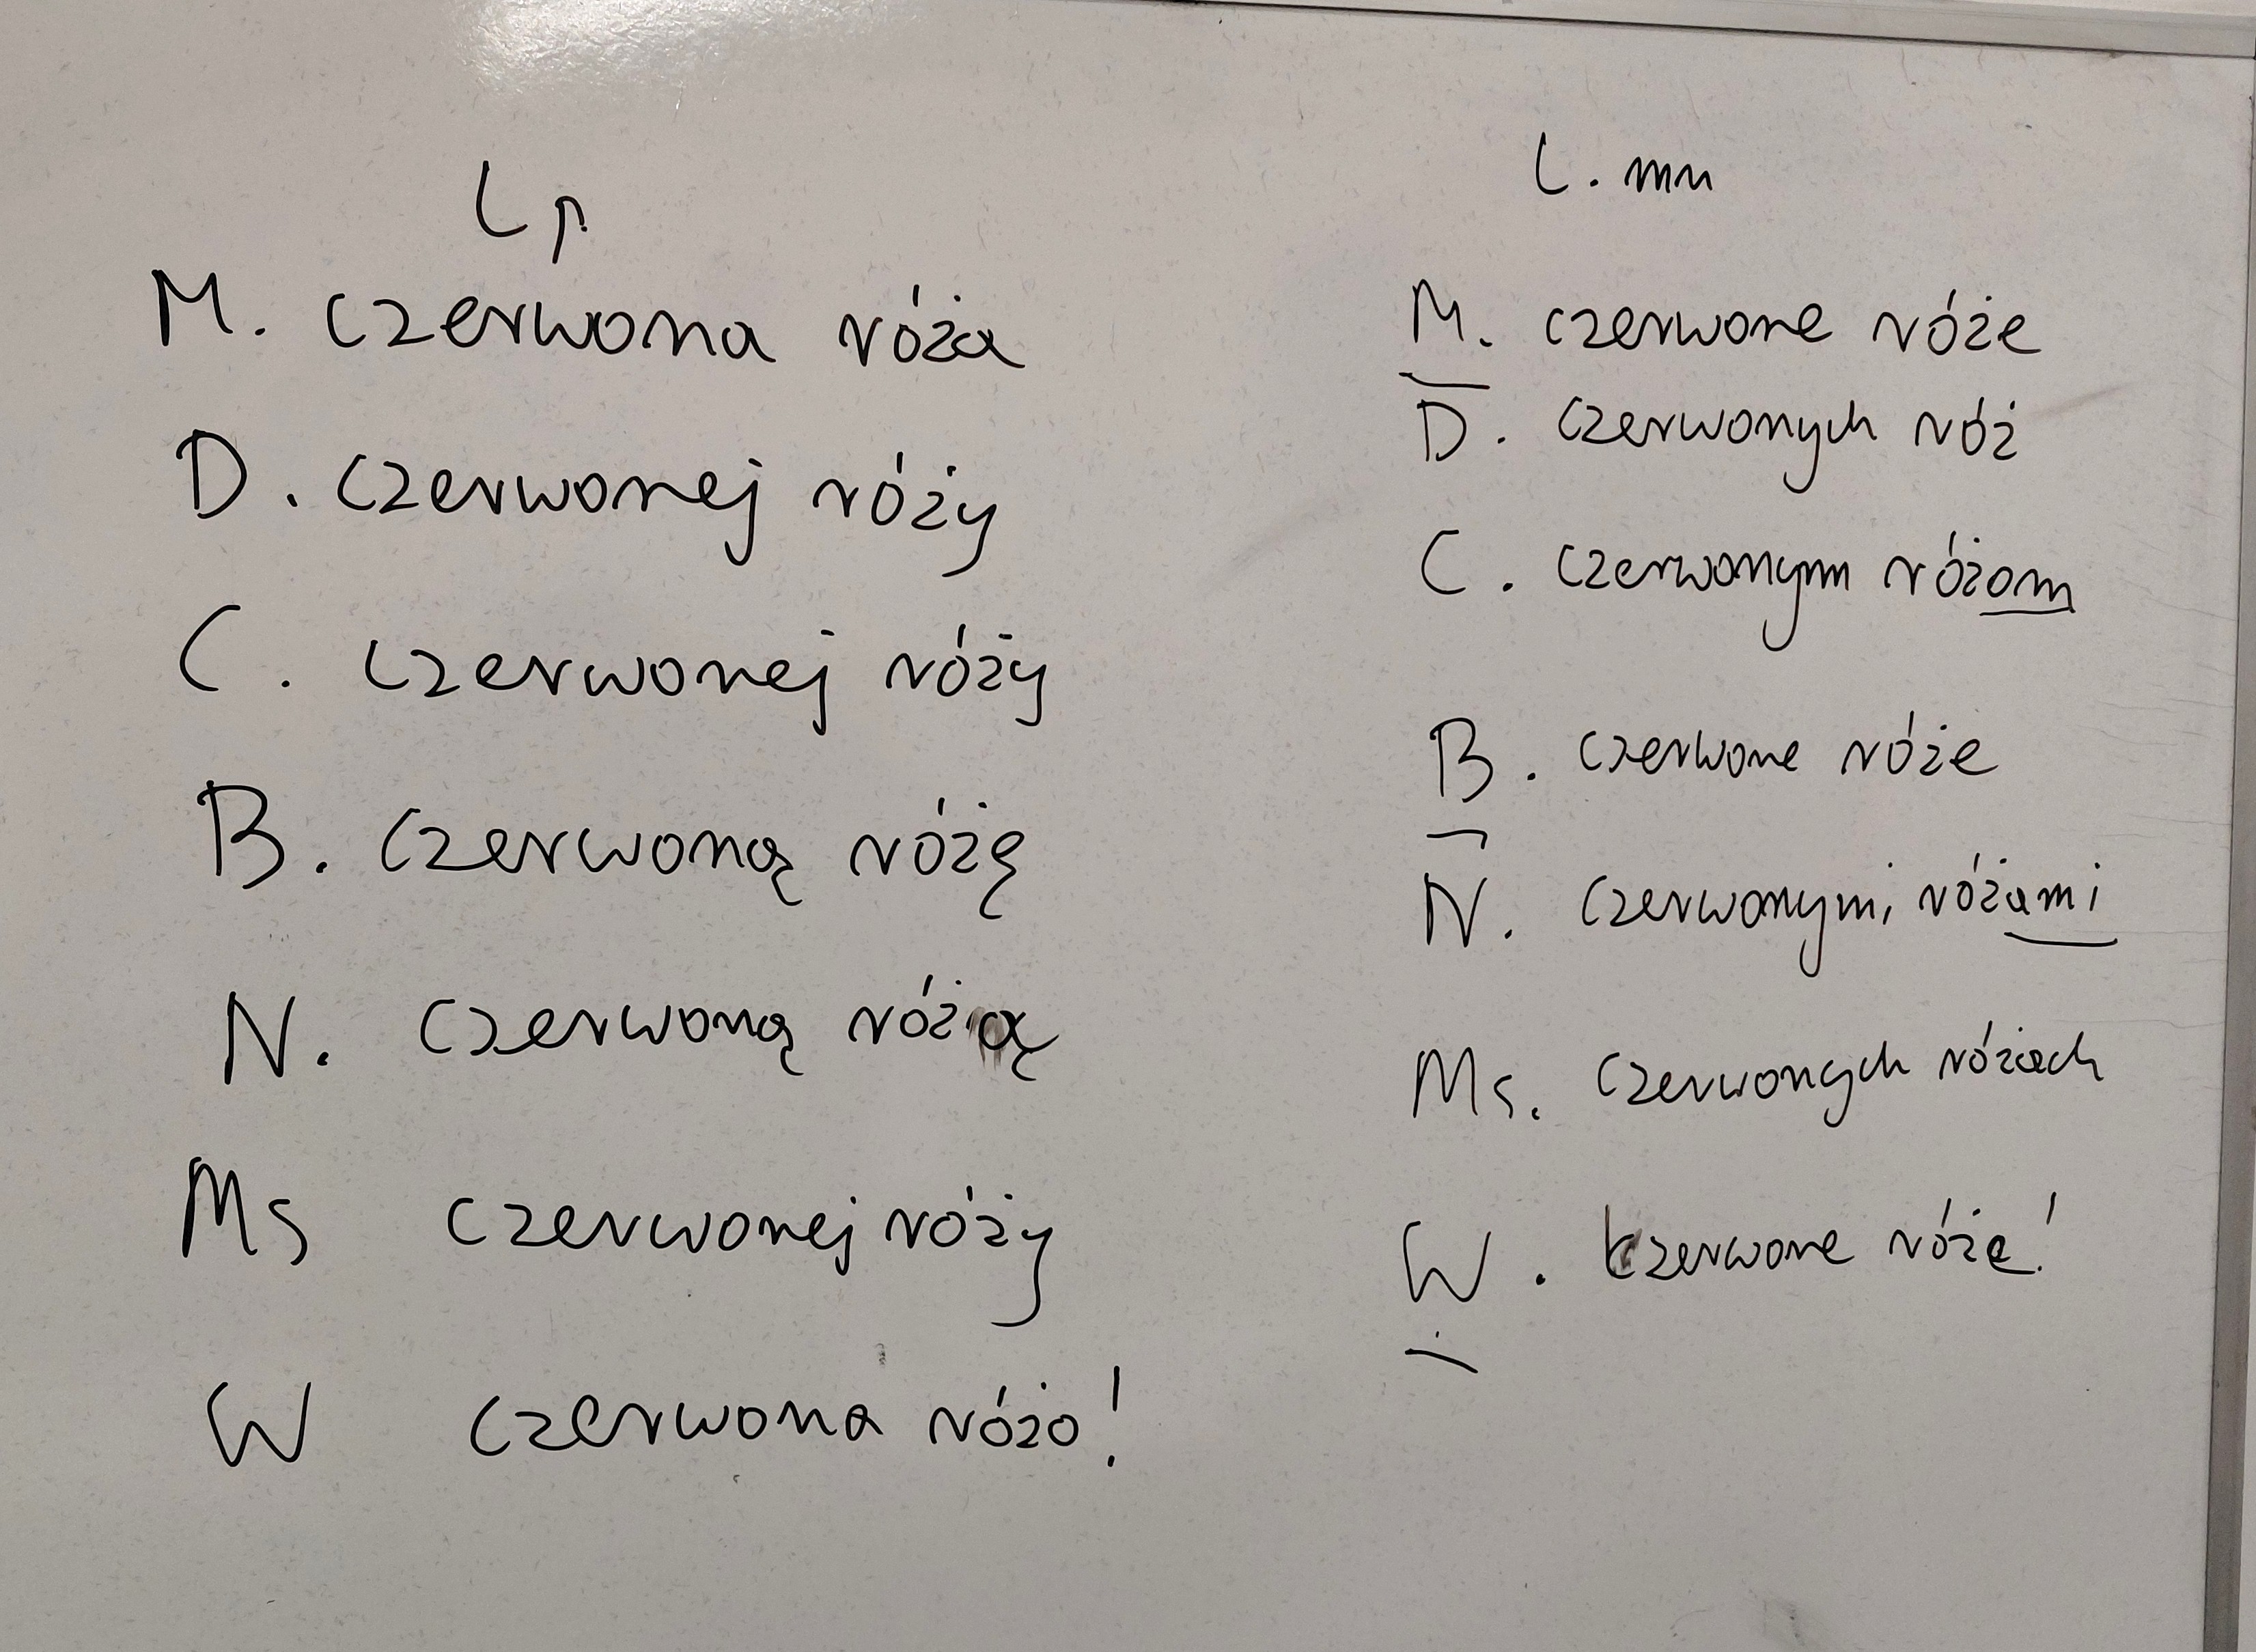 Lp.
M. czerwona róża
D. czerwonej róży
C. czerwonej róży
B. czerwoną różę
N. czerwoną różą
Ms czerwonej róży
W czerwona różo!
L. mn
M. czerwone róże
D. czerwonych róż
C. czerwonym różom
B. czerwone róże
N. czerwonymi różami
Ms. czerwonych różach
W. czerwone róże!